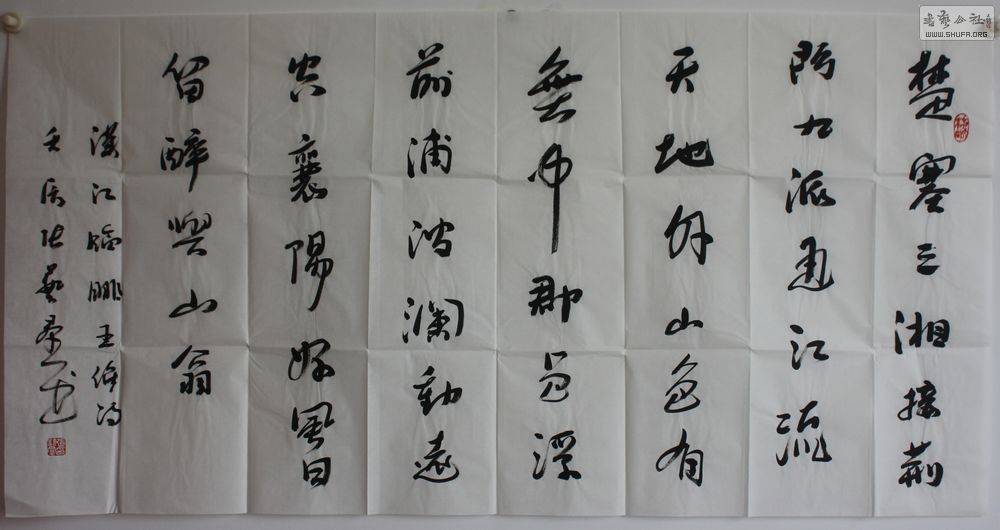 楚塞三湘接荊
門九派通江流
天地外山色有
無中郡邑浮
前浦波瀾動遠
空襄陽好風日
留醉與山翁
漢江臨眺王維詩
壬辰張
書藝公社
WWW.SHUFA.ORG